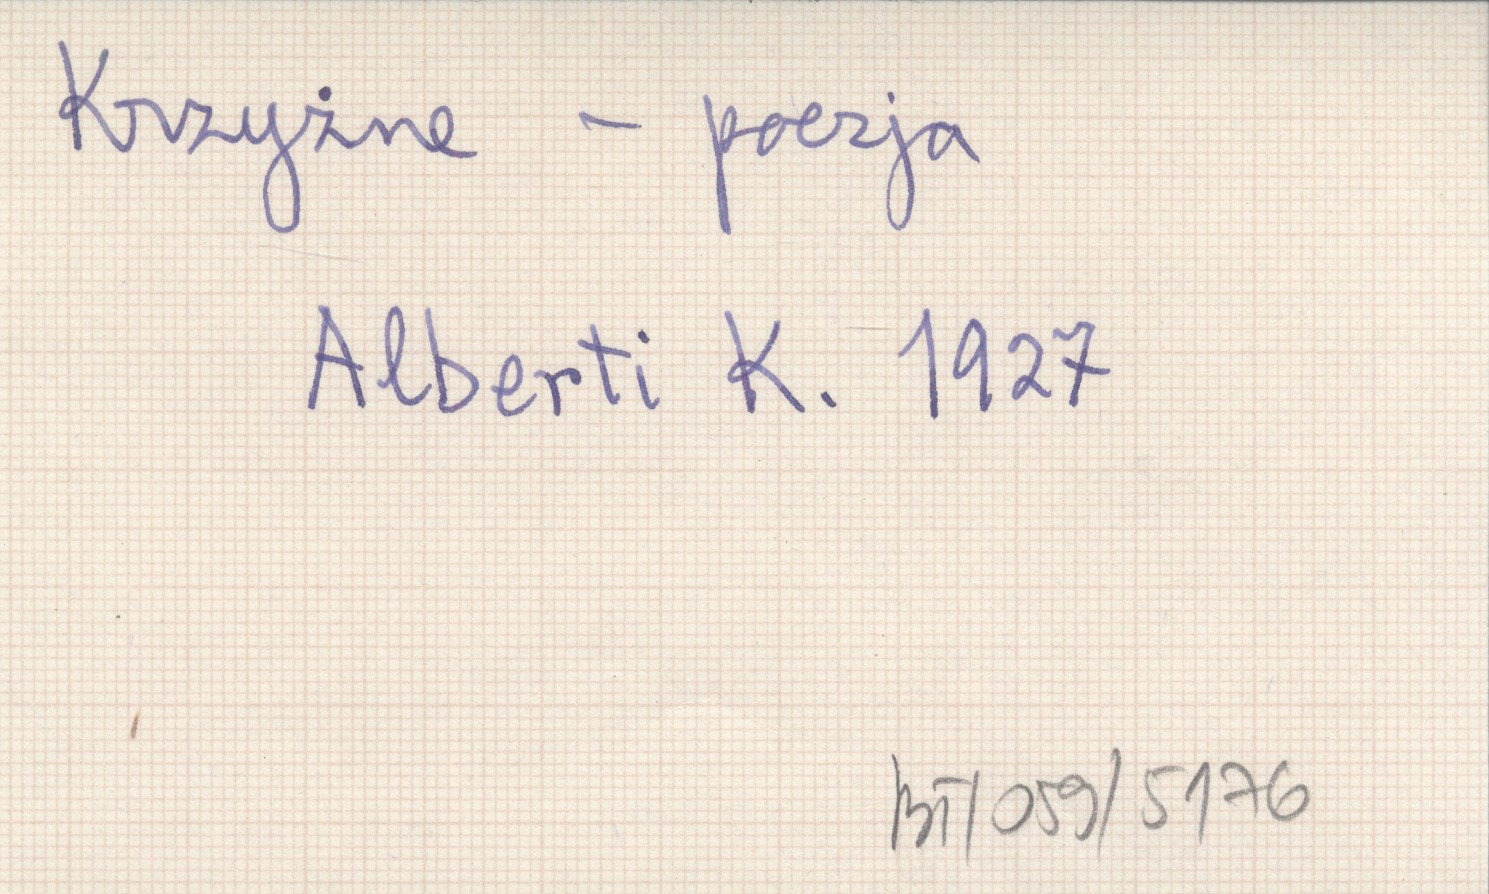 Krzyżne - poezja
Alberti K. 1927
BT/059/5176